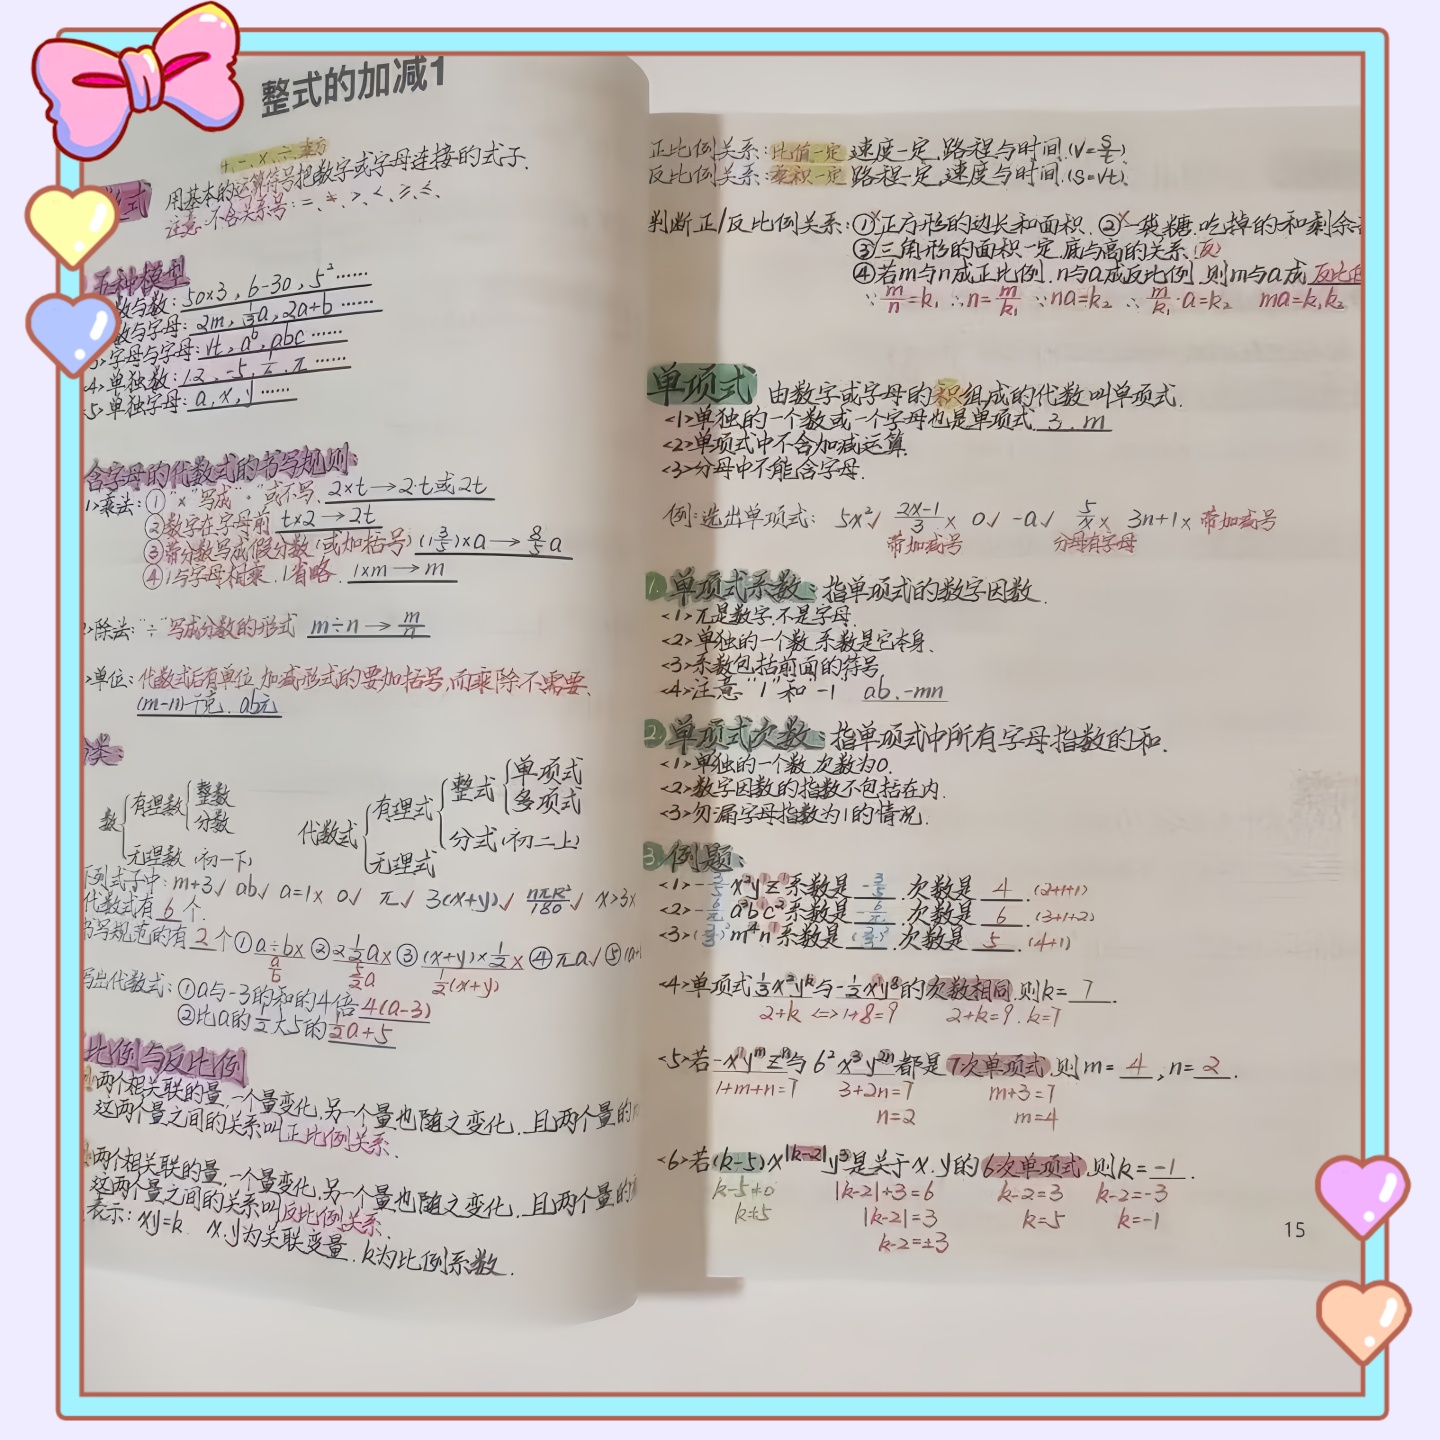 整式的加减1
+、-、×、÷、乘方
用基本的运算符号把数字或字母连接的式子.
注意:不含关系号:=、≠、>、<、≥、≤、
五种模型
数与数: 50×3, 6-30, 5²……
数与字母: 2m, 1/3a, 2a+b……
字母与字母: vt, aᵇ, abc……
<4>单独数: 1.2, -5, π……
5>单独字母: a, x, y……
含字母的代数式的书写规则
1>乘法:①"×"写成"·"或不写. 2×t→2·t或2t
②数字在字母前 t×2→2t
③带分数写成假分数(或加括号) (1 3/5)×a→8/5 a
④1与字母相乘.1省略. 1×m→m
除法:"÷"写成分数的形式 m÷n→m/n
>单位:代数式后有单位,加减形式的要加括号,而乘除不需要.
(m-n)千克. ab元
类:
数{有理数{整数 分数
无理数(初一下)
代数式{有理式{整式{单项式 多项式
分式(初二上)
无理式
下列式子中: m+3√ ab√ a=1× 0√ π√ 3(x+y)√ nπR²/180√ x>3×
代数式有 6 个.
书写规范的有 2 个①a÷b× ②2 1/2 a× ③(x+y)×1/2× ④πa√ ⑤(a+
a/b 5/2a 1/2(x+y)
写出代数式:①a与-3的和的4倍 4(a-3)
②比a的1/2大5的 1/2a+5
比例与反比例
两个相关联的量,一个量变化,另一个量也随之变化.且两个量的
这两个量之间的关系叫正比例关系.
两个相关联的量,一个量变化,另一个量也随之变化.且两个量的
这两个量之间的关系叫反比例关系.
表示:xy=k. x.y为关联变量.k为比例系数.
正比例关系:比值一定 速度一定.路程与时间.(v=s/t)
反比例关系:乘积一定 路程一定,速度与时间.(s=vt)
判断正/反比例关系:①×正方形的边长和面积. ②×一袋糖.吃掉的和剩余
③三角形的面积一定.底与高的关系.(反)
④若m与n成正比例.n与a成反比例.则m与a成 反比
∵m/n=k₁ ∴n=m/k₁ ∵na=k₂ ∴m/k₁·a=k₂ ma=k₁k₂
单项式 由数字或字母的积组成的代数叫单项式.
<1>单独的一个数或一个字母也是单项式. 3.m
<2>单项式中不含加减运算.
<3>分母中不能含字母.
例:选出单项式: 5x²√ 2x-1/3× 0√ -a√ 5/x× 3n+1× 带加减号
带加减号 分母有字母
1.单项式系数:指单项式的数字因数.
<1>π是数字.不是字母.
<2>单独的一个数,系数是它本身.
<3>系数包括前面的符号.
<4>注意"1"和"-1" ab.-mn
2.单项式次数:指单项式中所有字母指数的和.
<1>单独的一个数,次数为0.
<2>数字因数的指数不包括在内.
<3>勿漏字母指数为1的情况.
3.例题:
<1>-3/5x²yz系数是 -3/5 .次数是 4 .(2+1+1)
<2>-6/π a³bc²系数是 -6/π .次数是 6 .(3+1+2)
<3>(2/3)²m⁴n系数是 (2/3)² .次数是 5 .(4+1)
<4>单项式1/3x²yᵏ与-1/2xy⁸的次数相同.则k= 7 .
2+k <=>1+8=9 2+k=9.k=7
<5>若-xyᵐzⁿ与6²x³y²ⁿ都是7次单项式.则m= 4 ,n= 2 .
1+m+n=7 3+2n=7 m+3=7
n=2 m=4
<6>若(k-5)x^|k-2|y³是关于x.y的6次单项式.则k= -1 .
k-5≠0 |k-2|+3=6 k-2=3 k-2=-3
k≠5 |k-2|=3 k=5 k=-1
k-2=±3
15